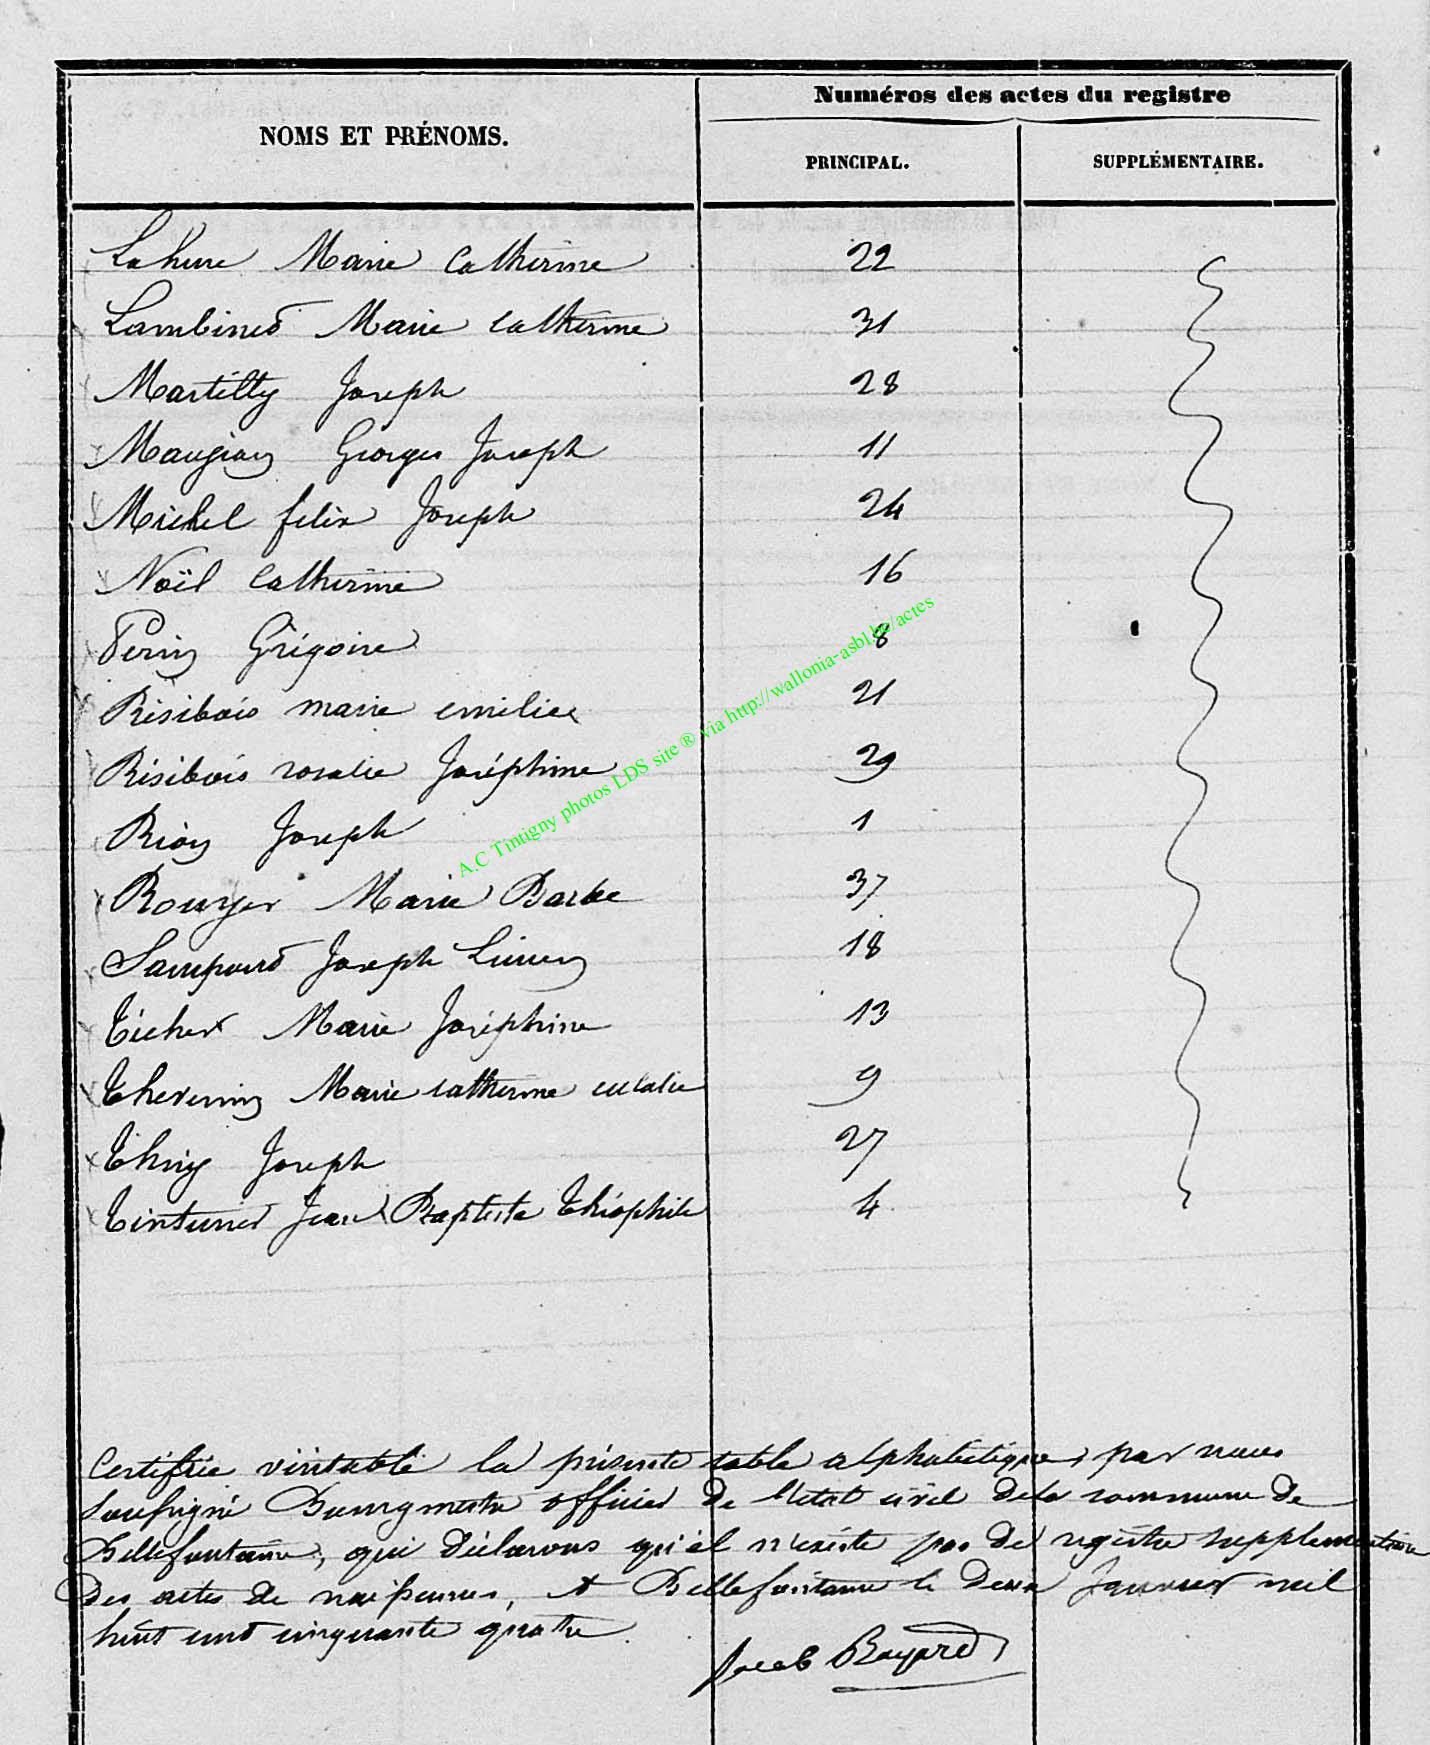 Numéros des actes du registre
NOMS ET PRÉNOMS.
PRINCIPAL. SUPPLÉMENTAIRE.
Lahure Marie Catherine 22
Lambinet Marie Catherine 31
Martilly Joseph 28
Maugian Georges Joseph 11
Michel felix Joseph 24
Noël Catherine 16
Perin Grégoire 8
Résibois marie emilie 21
Résibois rosalie Joséphine 29
Rion Joseph 1
Rouyer Marie Barbe 37
Sampont Joseph 18
Marie Joséphine 13
Thevenin Marie catherine eulalie 9
Thiry Joseph 27
Jean Baptiste Théophile 4
A.C Tintigny photos LDS site ® via http://wallonia-asbl.be/actes
Certifiée véritable la présente table alphabétique, par nous
soussigné Bourgmestre officier de l'état civil de la commune de
Bellefontaine, qui déclarons qu'il n'existe pas de régistre supplementaire
des actes de naissances, A Bellefontaine le deux Janvier mil
huit cent cinquante quatre.
Jacob Bayard